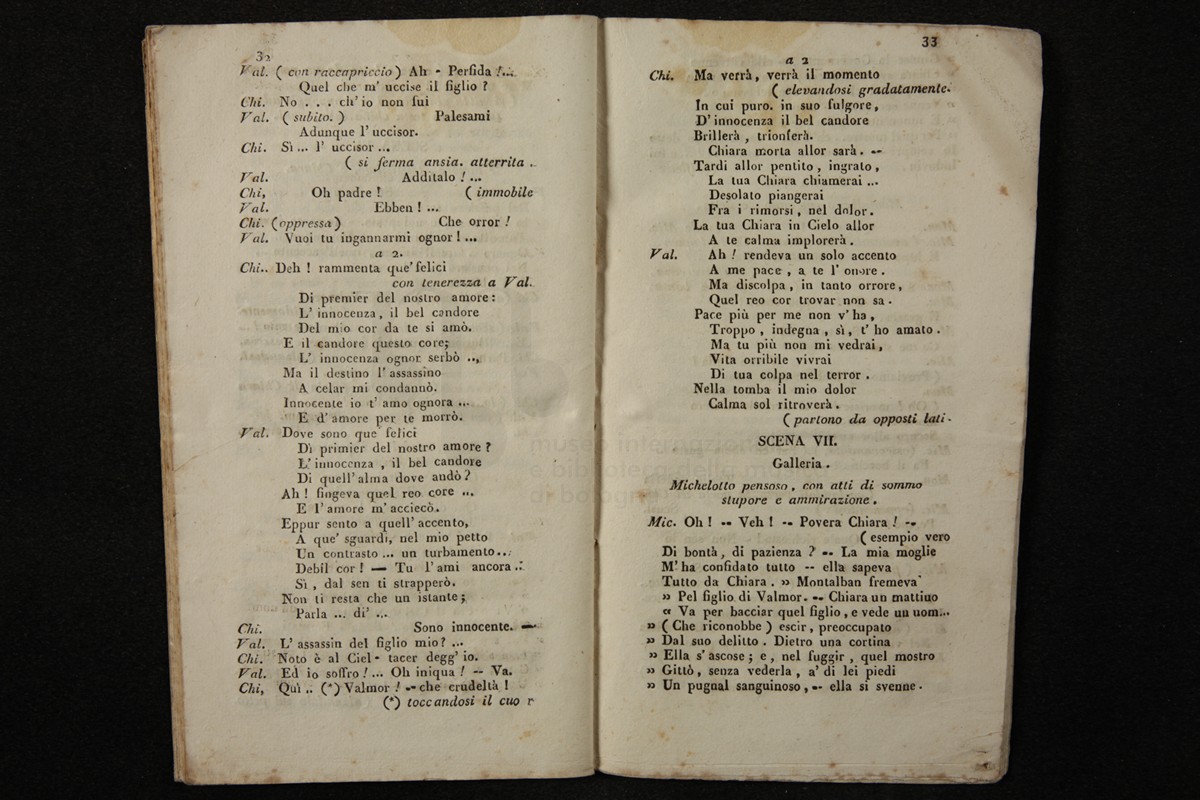 32
Val. ( con raccapriccio ) Ah - Perfida !...
Quel che m' uccise il figlio ?
Chi. No . . . ch' io non fui
Val. ( subito. ) Palesami
Adunque l' uccisor.
Chi. Sì ... l' uccisor ...
( si ferma ansia. atterrita .
Val. Additalo ! ...
Chi, Oh padre ! ( immobile
Val. Ebben ! ...
Chi. (oppressa) Che orror !
Val. Vuoi tu ingannarmi ognor ! ...
a 2.
Chi.. Deh ! rammenta que' felici
con tenerezza a Val.
Di premier del nostro amore :
L' innocenza , il bel candore
Del mio cor da te si amò.
E il candore questo core;
L' innocenza ognor serbò ..,
Ma il destino l' assassino
A celar mi condannò.
Innocente io t' amo ognora ...
E d' amore per te morrò.
Val. Dove sono que' felici
Dì primier del nostro amore ?
L' innocenza , il bel candore
Di quell' alma dove andò ?
Ah ! fingeva quel reo core ...
E l' amore m' acciecò.
Eppur sento a quell' accento,
A que' sguardi, nel mio petto
Un contrasto ... un turbamento...
Debil cor ! — Tu l' ami ancora ..
Sì , dal sen ti strapperò.
Non ti resta che un istante ;
Parla ... di' ...
Chi. Sono innocente. —
Val. L' assassin del figlio mio ? ...
Chi. Noto è al Ciel - tacer degg' io.
Val. Ed io soffro ! ... Oh iniqua ! -- Va.
Chi, Quì .. (*) Valmor ! -- che crudeltà !
(*) toccandosi il cuo r
33
a 2
Chi. Ma verrà, verrà il momento
( elevandosi gradatamente.
In cui puro. in suo fulgore ,
D' innocenza il bel candore
Brillerà , trionferà.
Chiara morta allor sarà. --
Tardi allor pentito , ingrato ,
La tua Chiara chiamerai ...
Desolato piangerai
Fra i rimorsi , nel dolor .
La tua Chiara in Cielo allor
A te calma implorerà .
Val. Ah ! rendeva un solo accento
A me pace , a te l' onore .
Ma discolpa , in tanto orrore ,
Quel reo cor trovar non sa .
Pace più per me non v' ha ,
Troppo , indegna , sì , t' ho amato .
Ma tu più non mi vedrai ,
Vita orribile vivrai
Di tua colpa nel terror .
Nella tomba il mio dolor
Calma sol ritroverà .
( partono da opposti lati .
SCENA VII.
Galleria .
Michelotto pensoso , con atti di sommo
stupore e ammirazione .
Mic. Oh ! -- Veh ! -- Povera Chiara ! --
( esempio vero
Di bontà, di pazienza ? -- La mia moglie
M' ha confidato tutto -- ella sapeva
Tutto da Chiara . » Montalban fremeva
» Pel figlio di Valmor. -- Chiara un mattino
« Va per bacciar quel figlio , e vede un uom...
» ( Che riconobbe ) escir, preoccupato
» Dal suo delitto . Dietro una cortina
» Ella s' ascose ; e , nel fuggir , quel mostro
» Gittò, senza vederla, a' di lei piedi
» Un pugnal sanguinoso , -- ella si svenne .
museo internazionale
e biblioteca della musica
di bologna